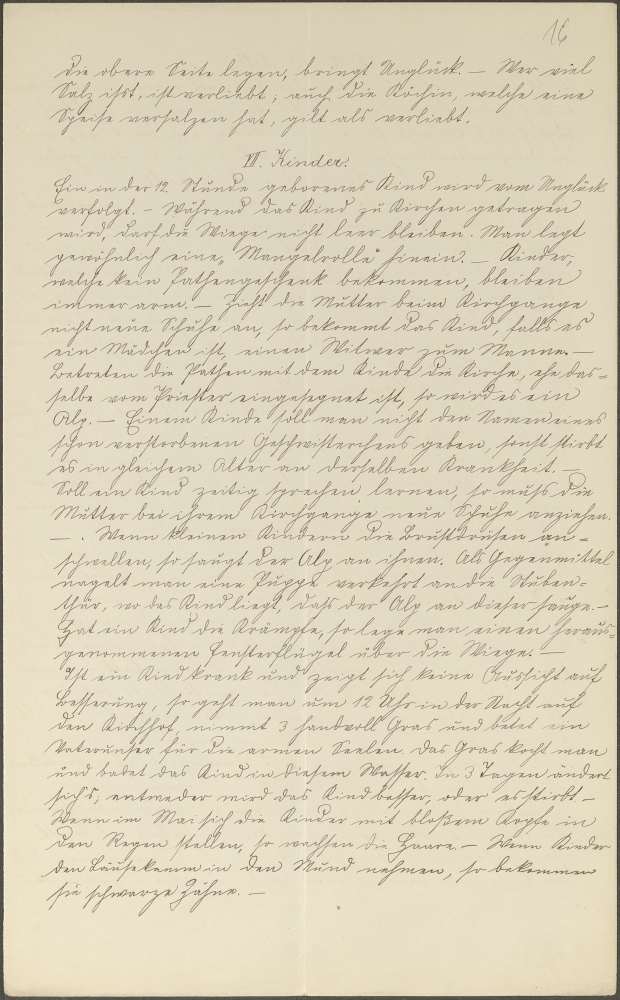 16
die obere Seite legen, bringt Unglück. – Wer viel
Salz isst, ist verliebt; auch die Köchin, welche eine
Speise versalzen hat, gilt als verliebt.
III. Kinder.
Ein in der 12. Stunde geborenes Kind wird vom Unglück
verfolgt. – Während das Kind zu Kirchen getragen
wird, darf die Wiege nicht leer bleiben. Man legt
gewöhnlich eine „Mangelrolle“ hinein. – Kinder,
welche kein Pathengeschenk bekommen, bleiben
immer arm. – Zieht die Mutter beim Kirchgange
nicht neue Schuhe an, so bekommt das Kind, falls es
ein Mädchen ist, einen Witwer zum Manne. –
Betreten die Pathen mit dem Kinde die Kirche, ehe das-
selbe vom Priester eingesegnet ist, so wird es ein
Alp. – Einem Kinde soll man nicht den Namen eines
schon verstorbenen Geschwisterchens geben, sonst stirbt
es in gleichem Alter an derselben Krankheit. –
Soll ein Kind zeitig sprechen lernen, so muß die
Mutter bei ihrem Kirchgange neue Schuhe anziehen.
– . Wenn kleinen Kindern die Brustdrüsen an-
schwellen, so saugt der Alp an ihnen. Als Gegenmittel
nagelt man eine Puppe verkehrt an die Stuben-
thür, wo das Kind liegt, daß der Alp an dieser sauge. –
Hat ein Kind die Krämpfe, so lege man einen heraus-
genommenen Fensterflügel über die Wiege. –
Ist ein Kind krank und zeigt sich keine Aussicht auf
Besserung, so geht man um 12 Uhr in der Nacht auf
den Kirchhof, nimmt 3 handvoll Gras und betet ein
Vaterunser für die armen Seelen. Das Gras kocht man
und badet das Kind in diesem Wasser. In 3 Tagen ändert
sich's, entweder wird das Kind besser, oder es stirbt –
Wenn im Mai sich die Kinder mit bloßem Kopfe in
den Regen stellen, so wachsen die Haare. – Wenn Kinder
den Läusekamm in den Mund nehmen, so bekommen
sie schwarze Zähne. –